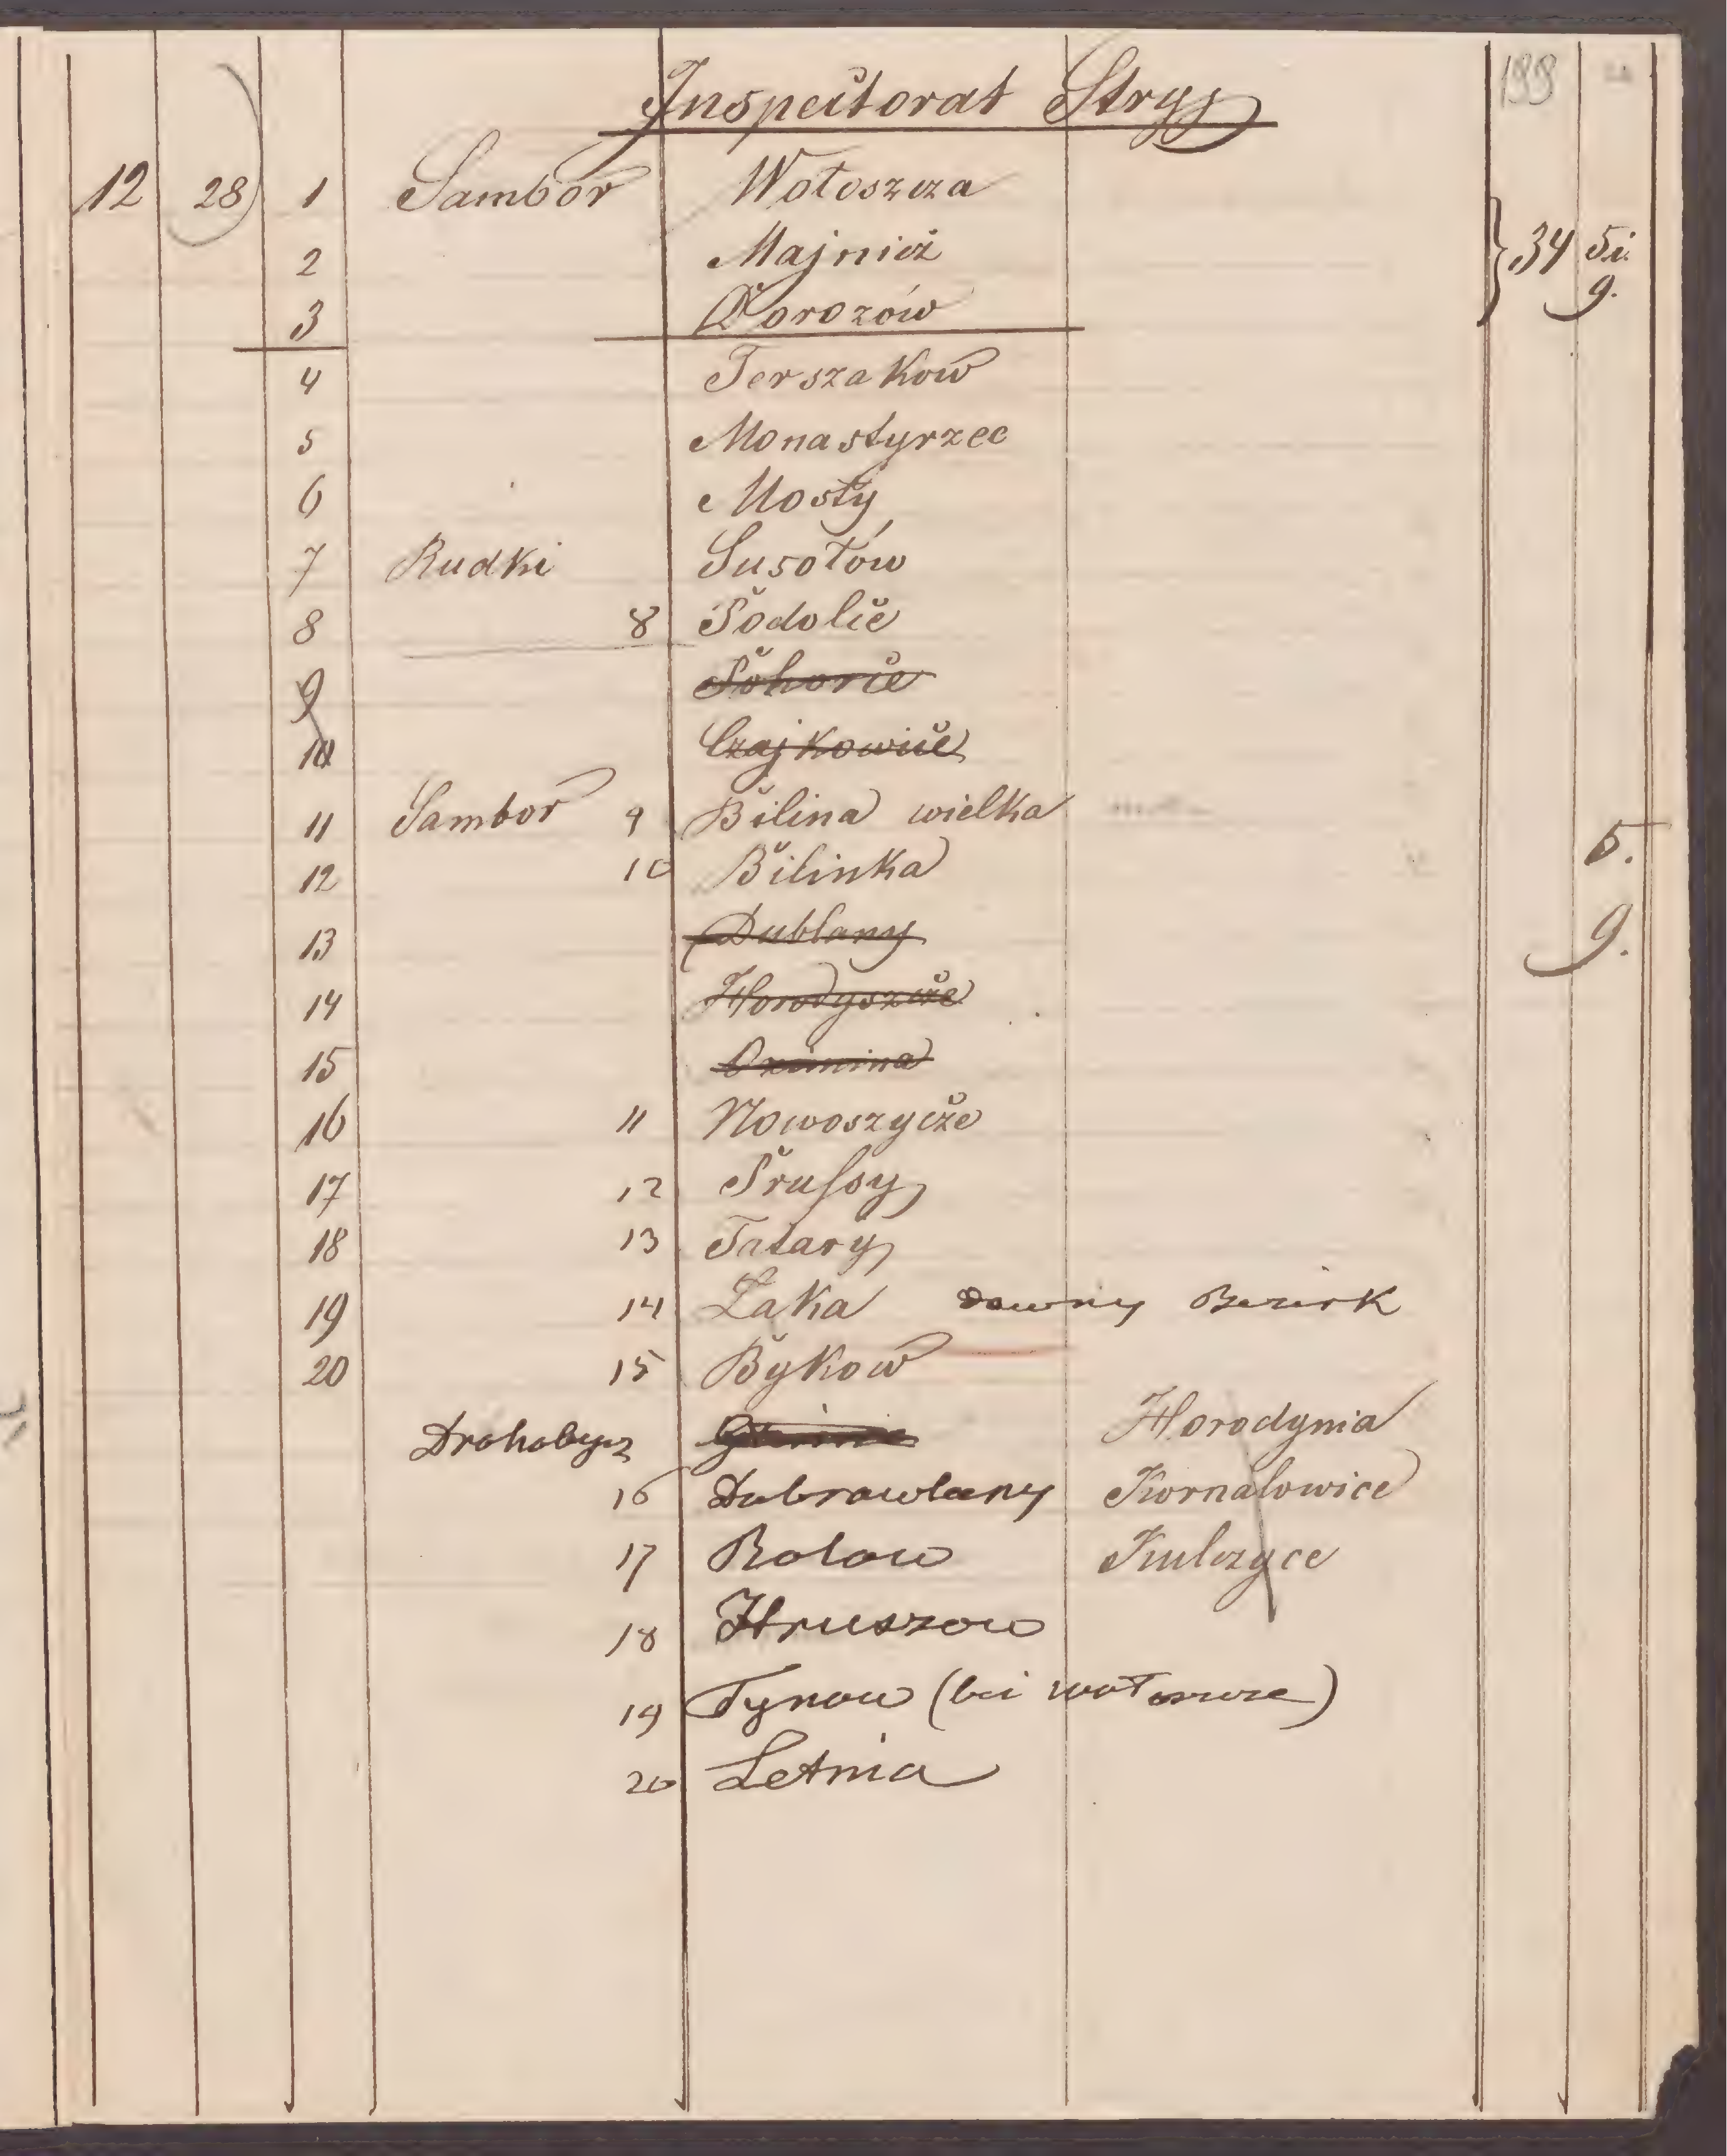 Inspectorat Stryj 199
12 28 1 Sambor Wołoszcza
2 Majnicz 34 5i.
3 Dorożów 9.
4 Terszaków
5 Monastyrzec
6 Mosty
7 Rudki Susołów
8 8 Podolce
9 Pohorce
10 Czajkowice
11 Sambor 9 Bilina wielka 5.
12 10 Bilinka
13 Dublany 9.
14 Horodyszcze
15 Ozimina
16 11 Nowoszycze
17 12 Prussy
18 13 Tatary
19 14 Łąka dawny Bezirk
20 15 Bykow
Drohobycz Horodynia
16 Dubrowlany Kornalowice
17 Rolow Kulczyce
18 Hruszow
19 Tynow (bei Wołoszcze)
20 Letnia